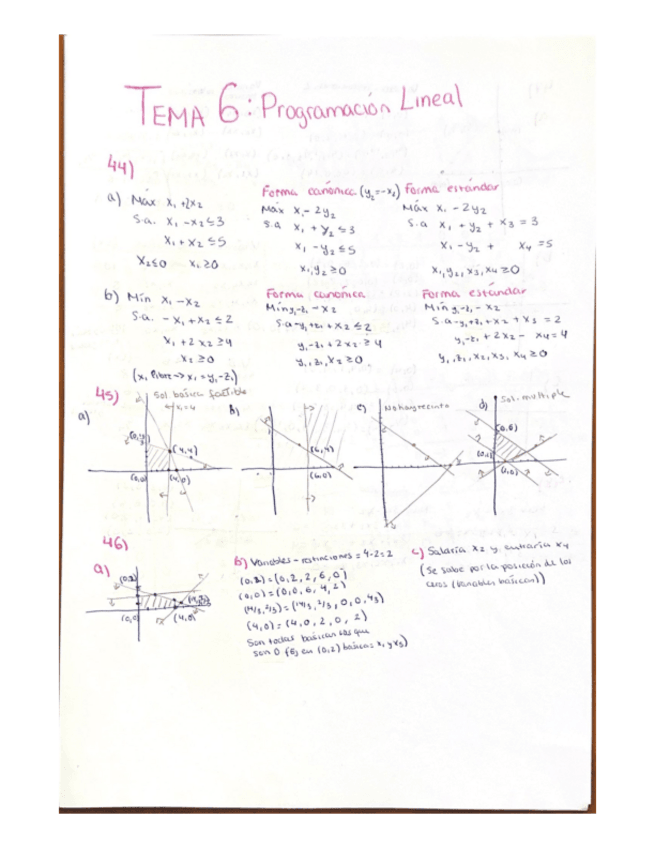 TEMA 6: Programación Lineal
44)
a) Máx x₁+2x₂
s.a. x₁-x₂≤3
x₁+x₂≤5
x₂≤0 x₁≥0
Forma canónica (y₂=-x₂)
Máx x₁-2y₂
s.a x₁+y₂≤3
x₁-y₂≤5
x₁,y₂≥0
Forma estándar
Máx x₁-2y₂
s.a x₁+y₂+x₃=3
x₁-y₂+ x₄=5
x₁,y₂,x₃,x₄≥0
b) Mín x₁-x₂
s.a. -x₁+x₂≤2
x₁+2x₂≥4
x₂≥0
(x₁ libre->x₁=y₁-z₁)
Forma canónica
Mín y₁-z₁-x₂
s.a -y₁+z₁+x₂≤2
y₁-z₁+2x₂≥4
y₁,z₁,x₂≥0
Forma estándar
Mín y₁-z₁-x₂
s.a -y₁+z₁+x₂+x₃=2
y₁-z₁+2x₂-x₄=4
y₁,z₁,x₂,x₃,x₄≥0
45)
a) Sol básica factible
x₁=4
(4,4)
(0,0) (4,0)
b)
(6,4)
(6,0)
c) No hay recinto
d) Sol. multiple
(0,6)
46)
a)
(0,2)
(0,0) (4,0)
b) Variables - restricciones = 4-2=2
(0,2)=(0,2,2,6,0)
(0,0)=(0,0,6,4,2)
(4,0)=(4,0,2,0,2)
Son todas básicas las que
son 0
c) Saldría x₂ y entraría x₄
(Se sabe por la posición de los
ceros (variables básicas))